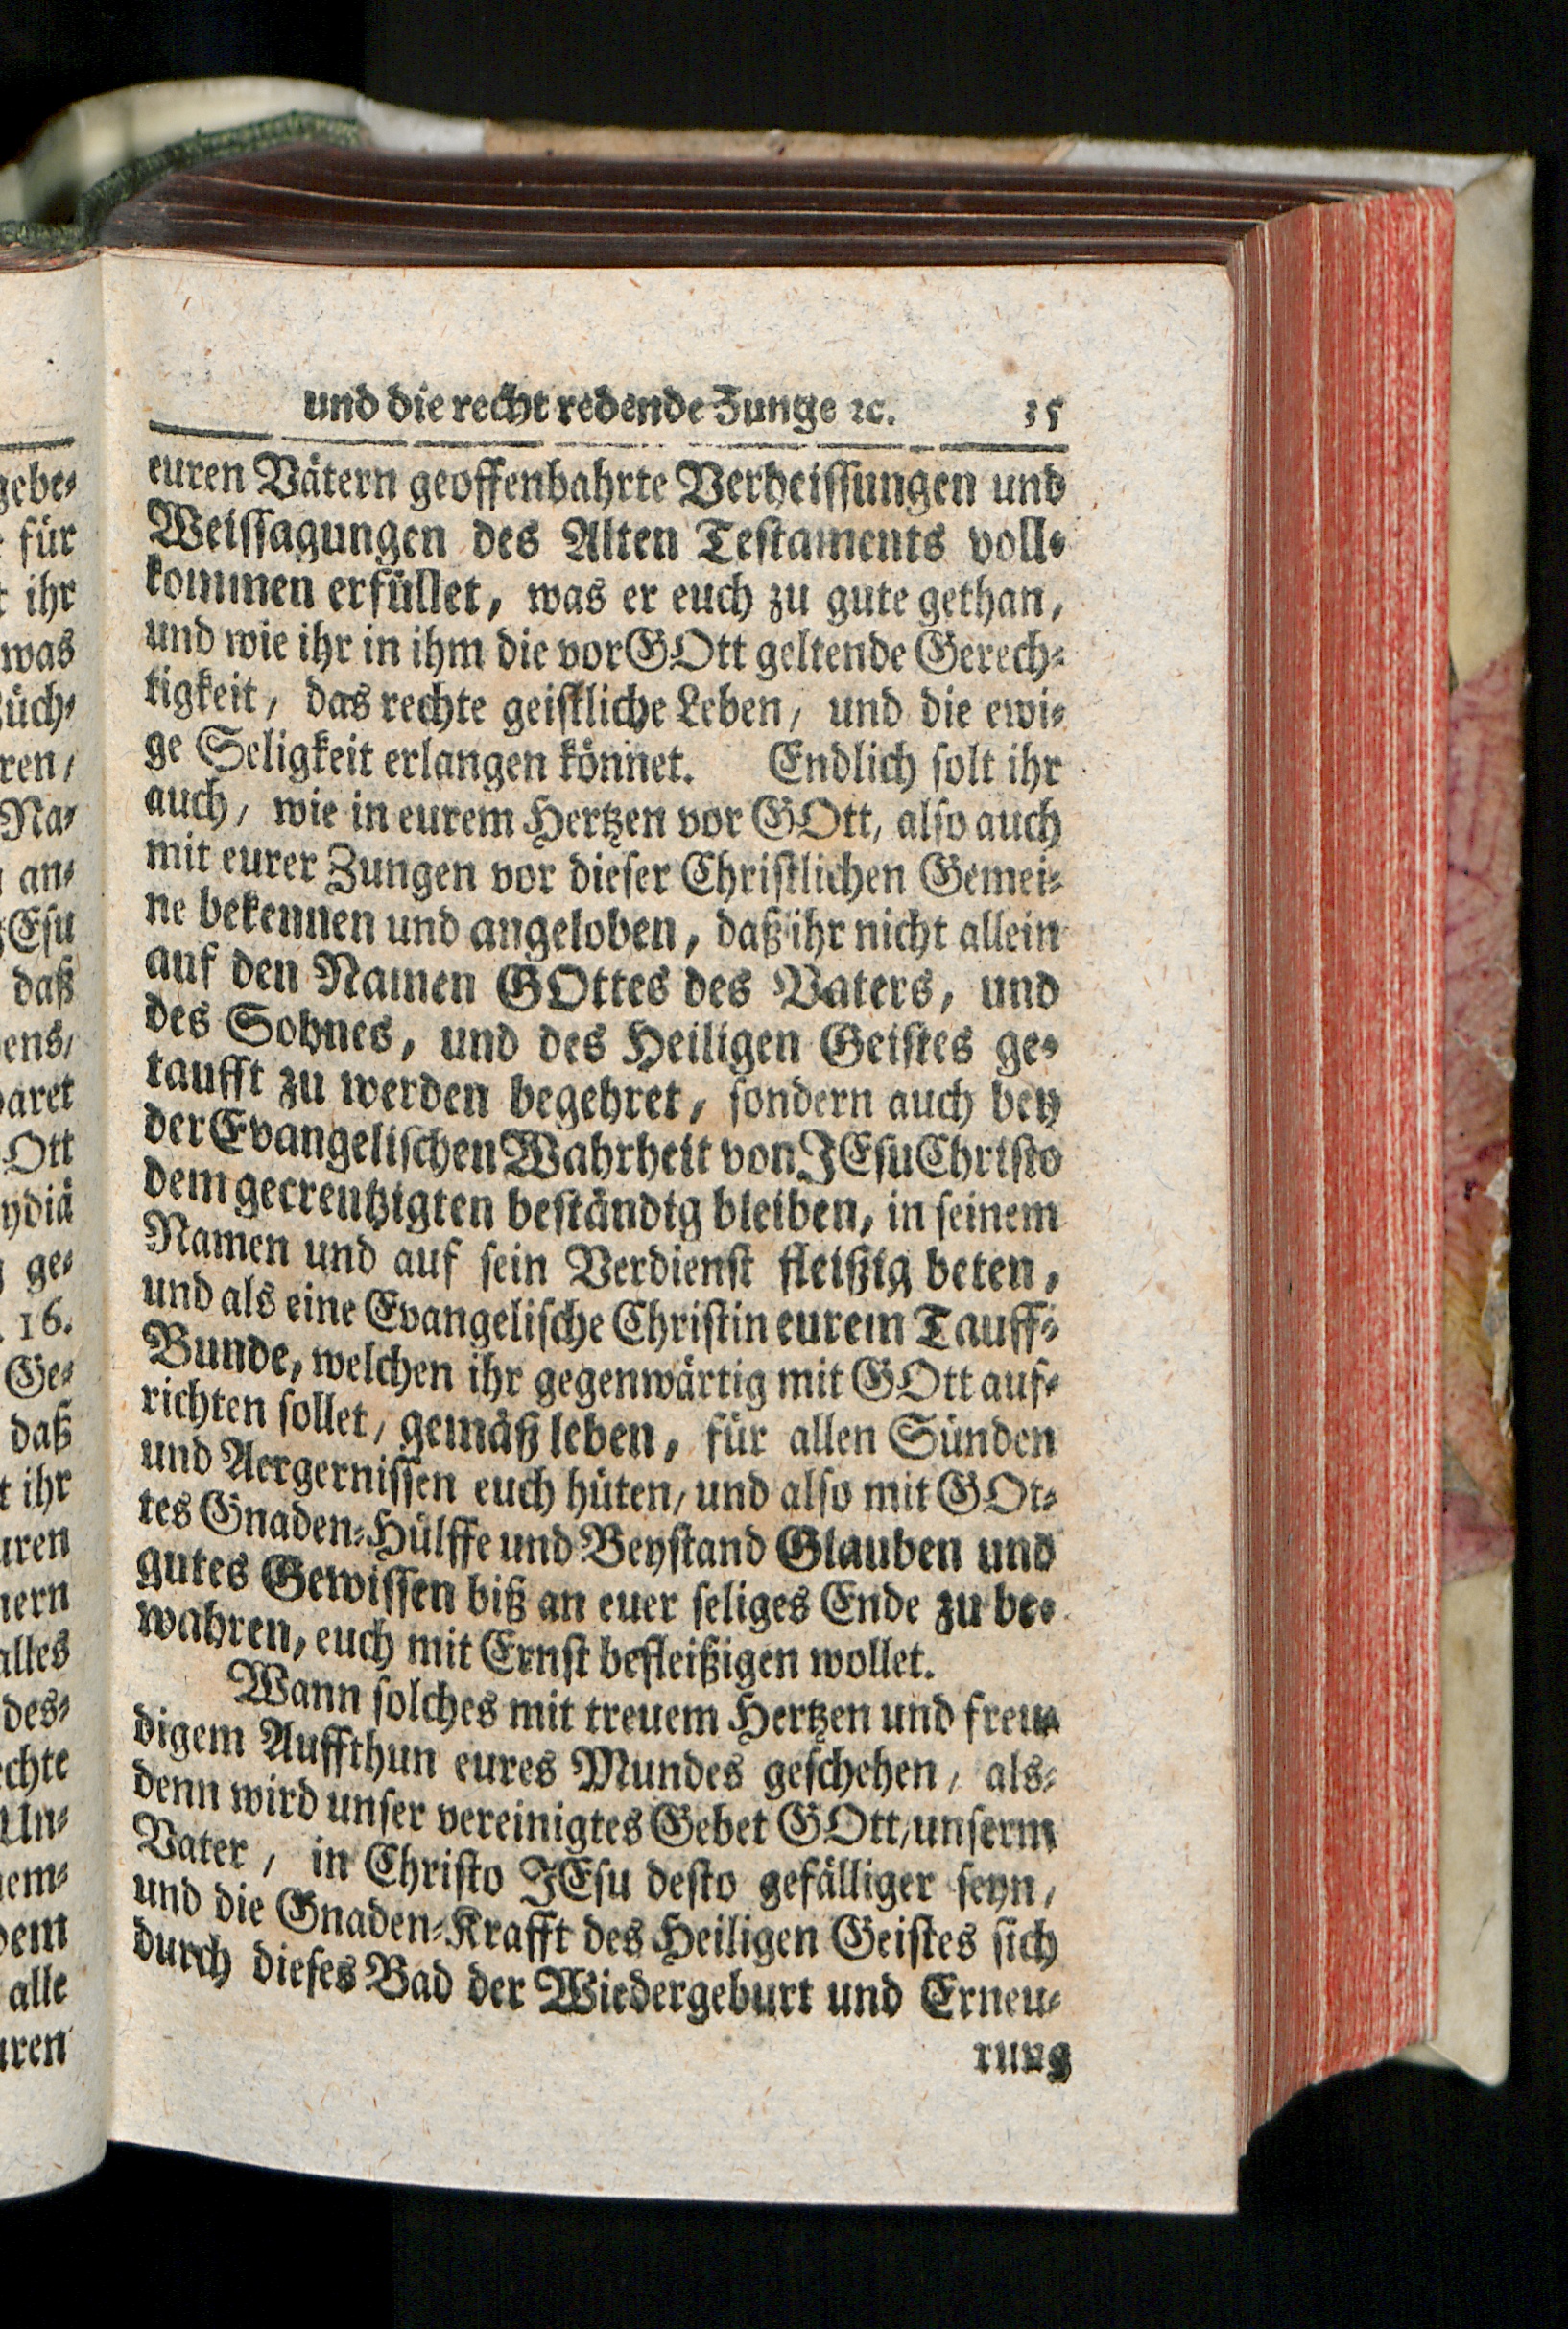 und die recht redende Zunge ꝛc. 35
euren Vätern geoffenbahrte Verheissungen und
Weissagungen des Alten Testaments voll-
kommen erfüllet, was er euch zu gute gethan,
und wie ihr in ihm die vor GOtt geltende Gerech-
tigkeit, das rechte geistliche Leben, und die ewi-
ge Seligkeit erlangen könnet. Endlich solt ihr
auch, wie in eurem Hertzen vor GOtt, also auch
mit eurer Zungen vor dieser Christlichen Gemei-
ne bekennen und angeloben, daß ihr nicht allein
auf den Namen GOttes des Vaters, und
des Sohnes, und des Heiligen Geistes ge-
taufft zu werden begehret, sondern auch bey
der Evangelischen Wahrheit von JEsu Christo
dem gecreutzigten beständig bleiben, in seinem
Namen und auf sein Verdienst fleißig beten,
und als eine Evangelische Christin eurem Tauff-
Bunde, welchen ihr gegenwärtig mit GOtt auf-
richten sollet, gemäß leben, für allen Sünden
und Aergernissen euch hüten, und also mit GOt-
tes Gnaden-Hülffe und Beystand Glauben und
gutes Gewissen biß an euer seliges Ende zu be-
wahren, euch mit Ernst befleißigen wollet.
Wann solches mit treuem Hertzen und freu-
digem Auffthun eures Mundes geschehen, als-
denn wird unser vereinigtes Gebet GOtt, unserm
Vater, in Christo JEsu desto gefälliger seyn,
und die Gnaden-Krafft des Heiligen Geistes sich
durch dieses Bad der Wiedergeburt und Erneu-
rung